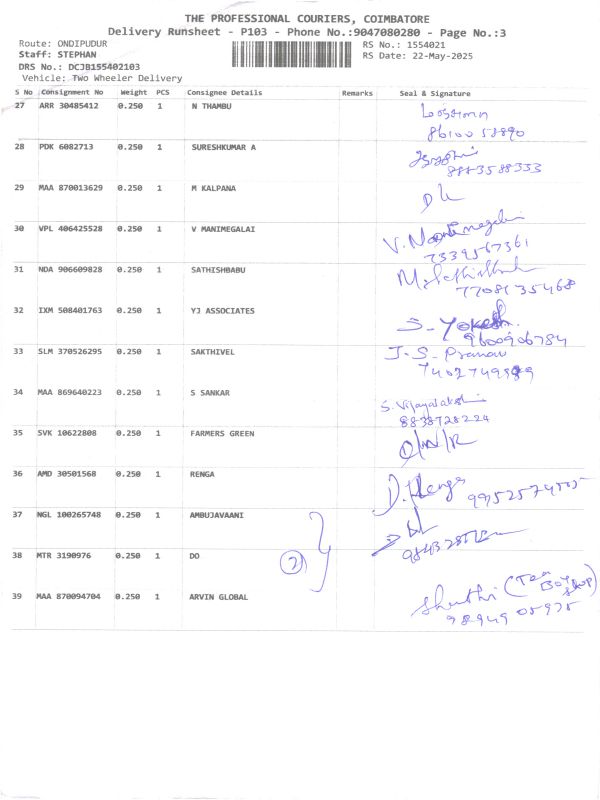 THE PROFESSIONAL COURIERS, COIMBATORE
Delivery Runsheet - P103 - Phone No.:9047080280 - Page No.:3
Route: ONDIPUDUR RS No.: 1554021
Staff: STEPHAN RS Date: 22-May-2025
DRS No.: DCJB155402103
Vehicle: Two Wheeler Delivery
S No Consignment No Weight PCS Consignee Details Remarks Seal & Signature
27 ARR 30485412 0.250 1 N THAMBU
28 PDK 6082713 0.250 1 SURESHKUMAR A
8883588333
29 MAA 870013629 0.250 1 M KALPANA
30 VPL 406425528 0.250 1 V MANIMEGALAI V. Manimegalai
7339567361
31 NDA 906609828 0.250 1 SATHISHBABU
7708135468
32 IXM 508401763 0.250 1 YJ ASSOCIATES S. Yokesh.
9600906784
33 SLM 370526295 0.250 1 SAKTHIVEL J-S- Pranav
34 MAA 869640223 0.250 1 S SANKAR S. Vijayalakshmi
8838728224
35 SVK 10622808 0.250 1 FARMERS GREEN
36 AMD 30501568 0.250 1 RENGA D. Renga
37 NGL 100265748 0.250 1 AMBUJAVAANI
38 MTR 3190976 0.250 1 DO 2
39 MAA 870094704 0.250 1 ARVIN GLOBAL Shuthi (Tea Boy Shop)
9894905975